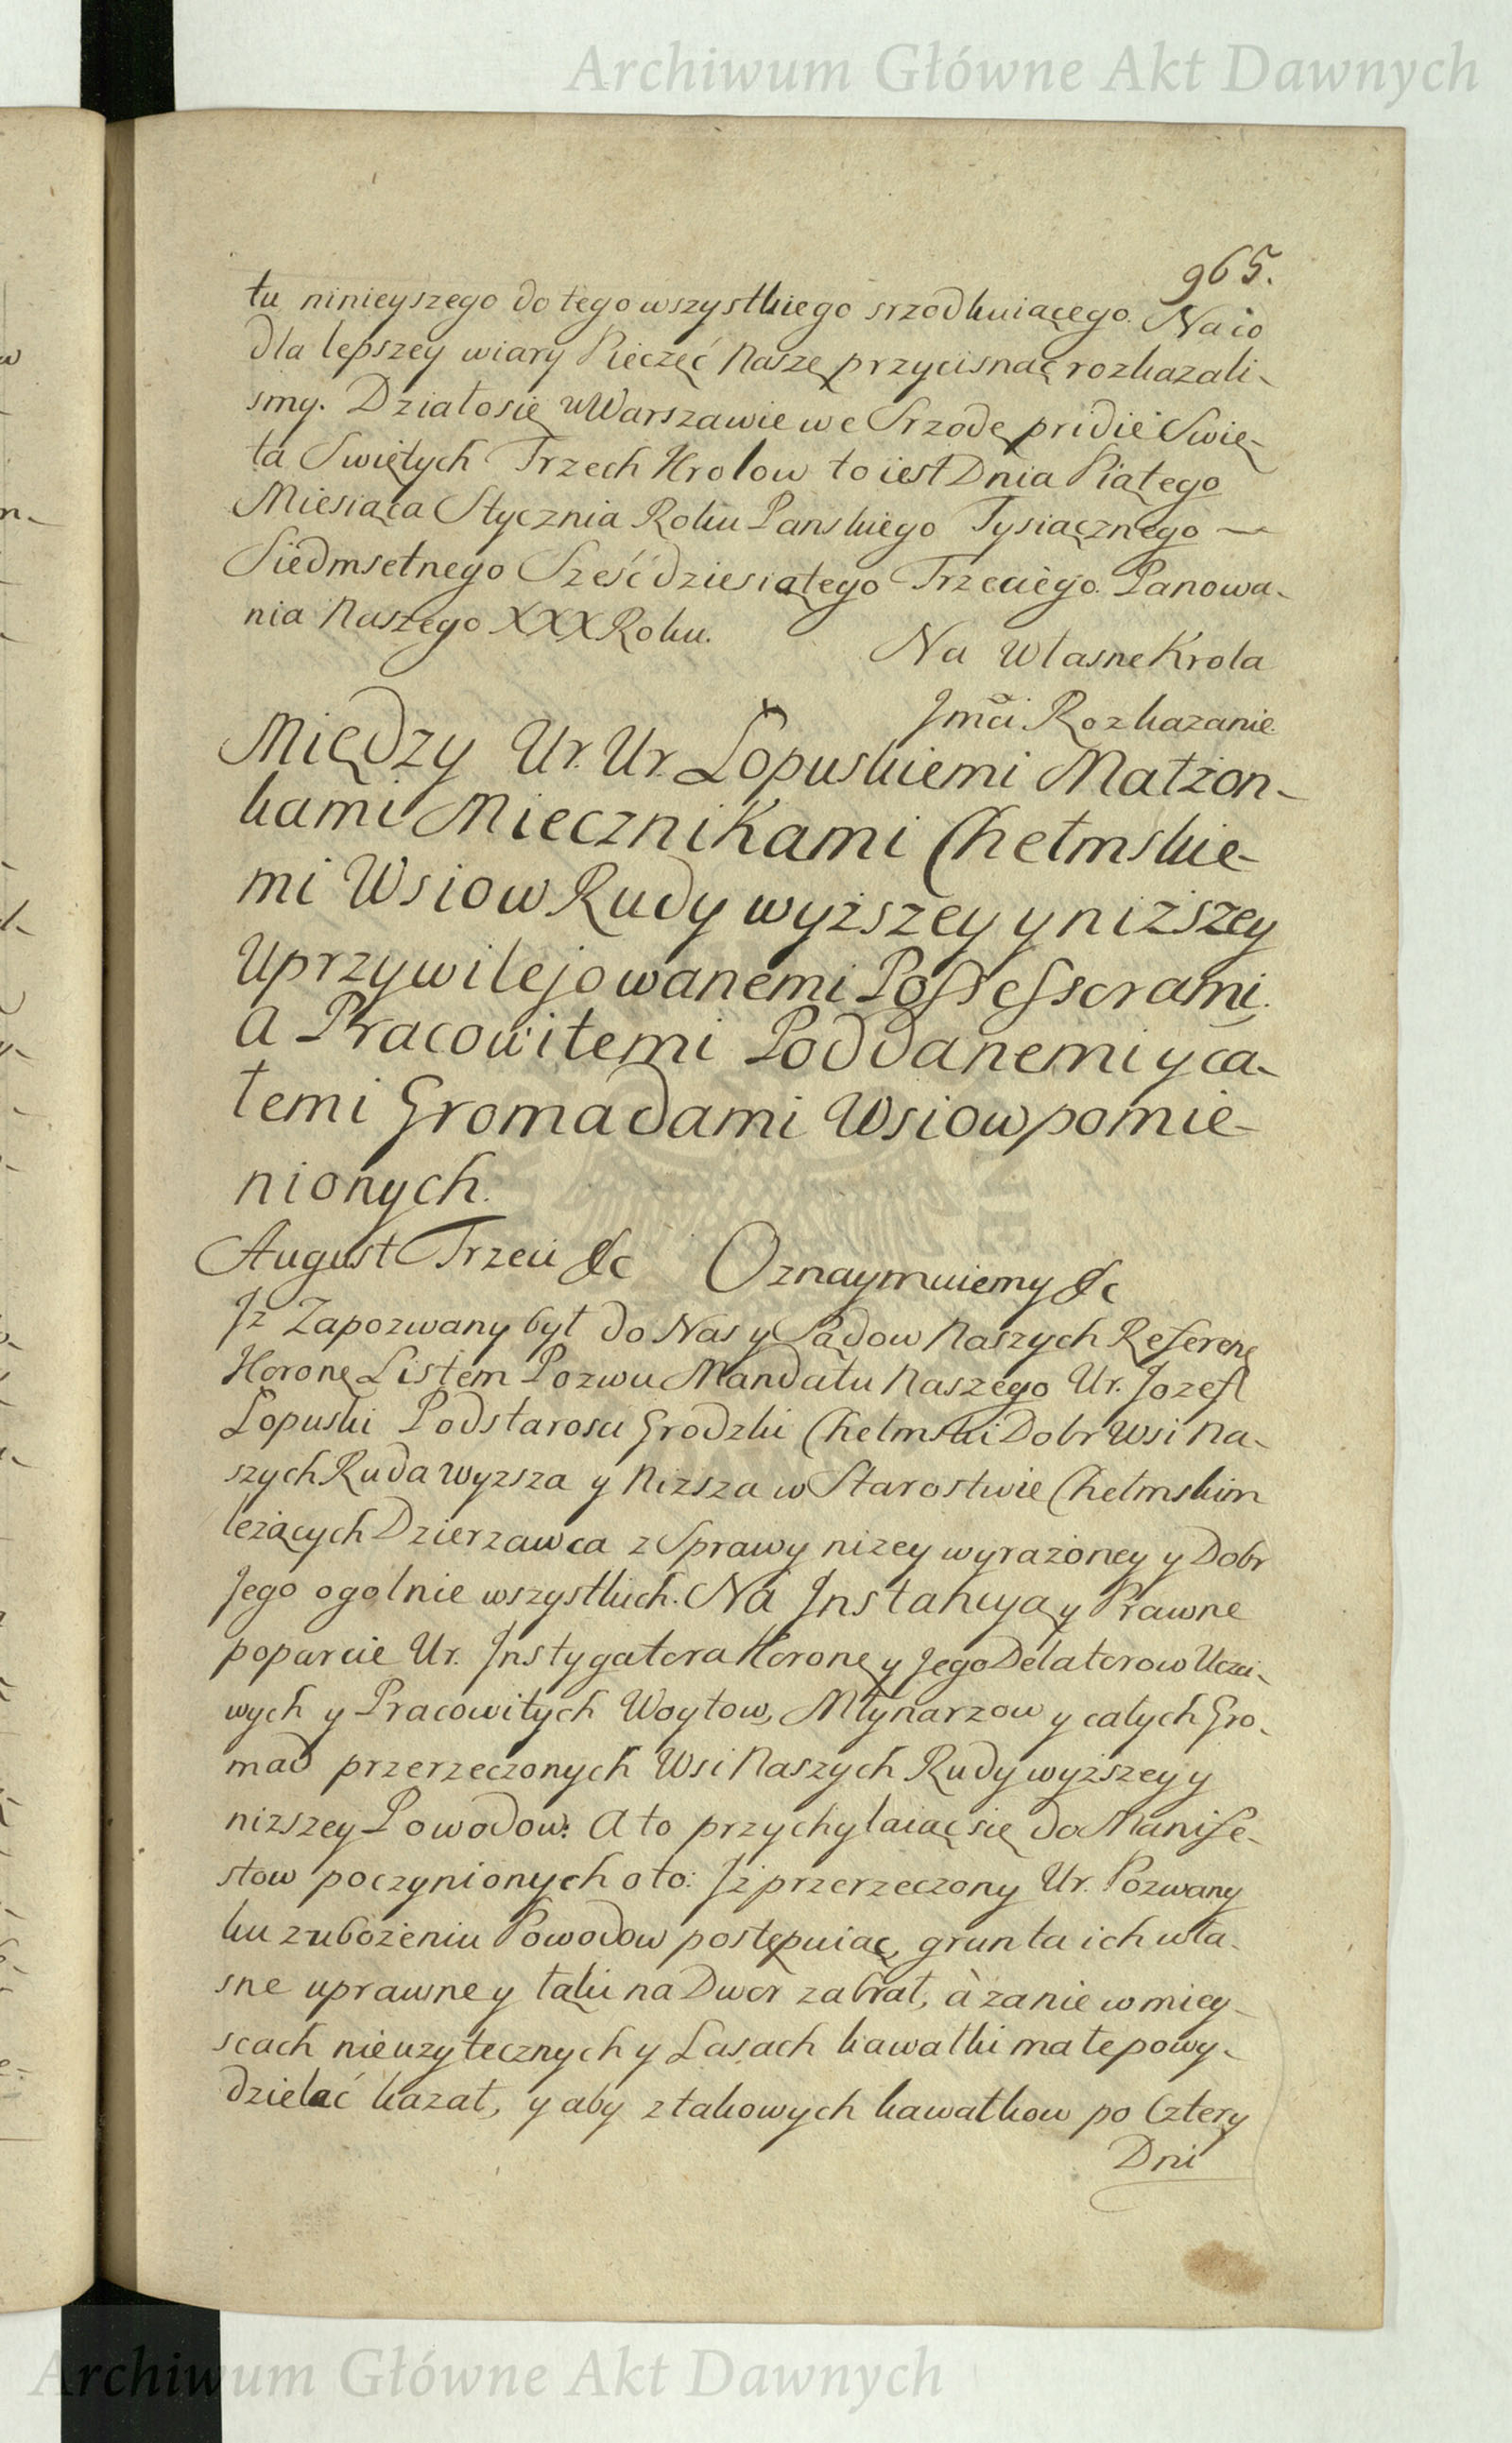 Archiwum Główne Akt Dawnych
965.
tu ninieyszego do tego wszystkiego srzodkuiącego. Na co
dla lepszey wiary Pieczęć Naszę przycisnąć rozkazali-
smy. Działosię w Warszawie we Srzodę pridie Swię-
ta Swiętych Trzech Krolow to iest Dnia Piątego
Miesiąca Stycznia Roku Panskiego Tysiącznego —
Siedmsetnego Sześćdziesiątego Trzeciego. Panowa-
nia Naszego XXX Roku.
Na Własne Krola
Jmci Rozkazanie.
Między Ur. Ur. Łopuskiemi Małżon-
kami Miecznikami Chełmskie-
mi Wsiow Rudy wyższey y niższey
Uprzywilejowanemi Possessorami.
A Pracowitemi Poddanemi y ca-
łemi Gromadami Wsiow pomie-
nionych.
August Trzeci &c Oznaymuiemy &c
Jż Zapozwany był do Nas y Sądow Naszych Referen
Koronę Listem Pozwu Mandatu Naszego Ur. Jozeff
Łopuski Podstarosci Grodzki Chełmski Dobr Wsi Na-
szych Ruda Wyzsza y Nizsza w Starostwie Chełmskim
leżących Dzierzawca z Sprawy nizey wyrażoney y Dobr
Jego ogolnie wszystkich. Na Jnstancyą y Prawne
poparcie Ur. Jnstygatora Koronę y Jego Delatorow Uczci-
wych y Pracowitych Woytow, Młynarzow y całych Gro-
mad przerzeczonych Wsi Naszych Rudy wyższey y
nizszey Powodow: A to przychylaiąc się do Manife-
stow poczynionych o to: Jż przerzeczony Ur. Pozwany
ku zubożeniu Powodow postępuiąc, grunta ich wła-
sne uprawne y łąki na Dwor zabrał, à za nie w miey-
scach nieuzytecznych y Lasach kawałki małe powy-
dzielać kazał, y aby z takowych kawałkow po Cztery
Dni
Archiwum Główne Akt Dawnych